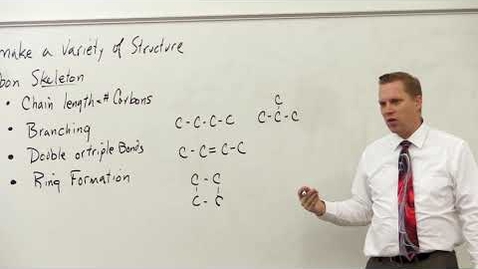 make a Variety of Structure
bon Skeleton
• Chain length # Carbons
• Branching
• Double or triple Bonds
• Ring Formation
C-C-C-C
C
C-C-C
C-C=C-C
C-C
C-C